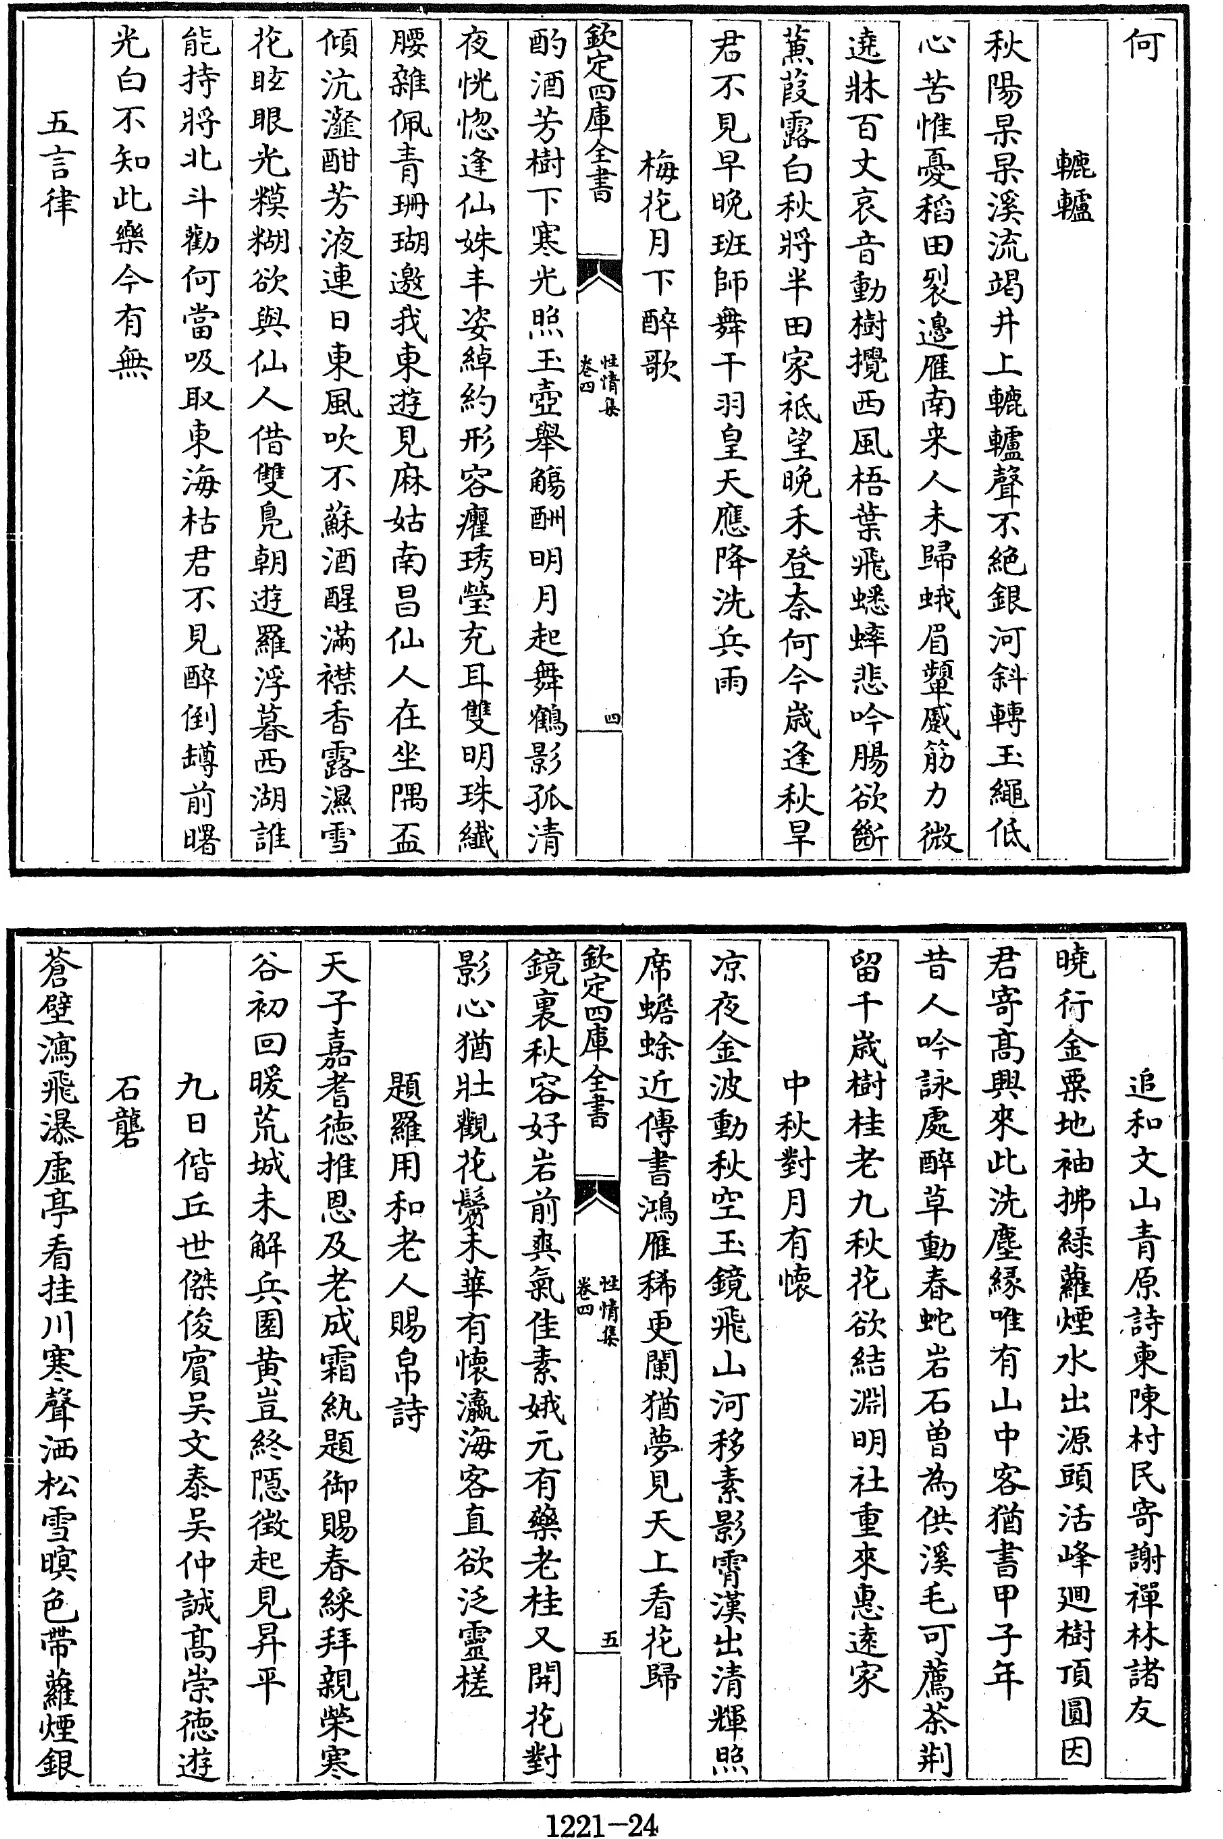 何
轆轤
秋陽杲杲溪流竭井上轆轤聲不絶銀河斜轉玉繩低
心苦惟憂稻田裂邉雁南来人未歸蛾眉顰蹙筋力微
遶牀百丈哀音動樹攪西風梧葉飛蟋蟀悲吟腸欲斷
蒹葭露白秋將半田家祗望晚禾登奈何今歲逢秋旱
君不見早晚班師舞干羽皇天應降洗兵雨
梅花月下醉歌
欽定四庫全書
性情集
卷四
四
酌酒芳樹下寒光照玉壺舉觴酬明月起舞鶴影孤清
夜恍惚逢仙姝丰姿綽約形容癯琇瑩充耳雙明珠纖
腰雜佩青珊瑚邀我東遊見麻姑南昌仙人在坐隅盃
傾沆瀣酣芳液連日東風吹不蘇酒醒滿襟香露濕雪
花眩眼光糢糊欲與仙人借雙鳧朝遊羅浮暮西湖誰
能持將北斗勸何當吸取東海枯君不見醉倒罇前曙
光白不知此樂今有無
五言律
追和文山青原詩柬陳村民寄謝禪林諸友
曉行金粟地袖拂緑蘿煙水出源頭活峰廻樹頂圓因
君寄髙興來此洗塵縁唯有山中客猶書甲子年
昔人吟詠處醉草動春蛇岩石曾為供溪毛可薦茶荆
留千歲樹桂老九秋花欲結淵明社重來惠逺家
中秋對月有懷
凉夜金波動秋空玉鏡飛山河移素影霄漢出清輝照
席蟾蜍近傳書鴻雁稀更闌猶夢見天上看花歸
欽定四庫全書
性情集
卷四
五
鏡裏秋容好岩前爽氣佳素娥元有藥老桂又開花對
影心猶壯觀花鬢未華有懷瀛海客直欲泛靈槎
題羅用和老人賜帛詩
天子嘉耆徳推恩及老成霜紈題御賜春綵拜親榮寒
谷初回暖荒城未解兵園黄豈終隱徴起見昇平
九日偕丘世傑俊賓吴文泰吴仲誠髙崇徳遊
石礱
蒼壁瀉飛瀑虛亭看挂川寒聲洒松雪暝色帶蘿煙銀
1221-24